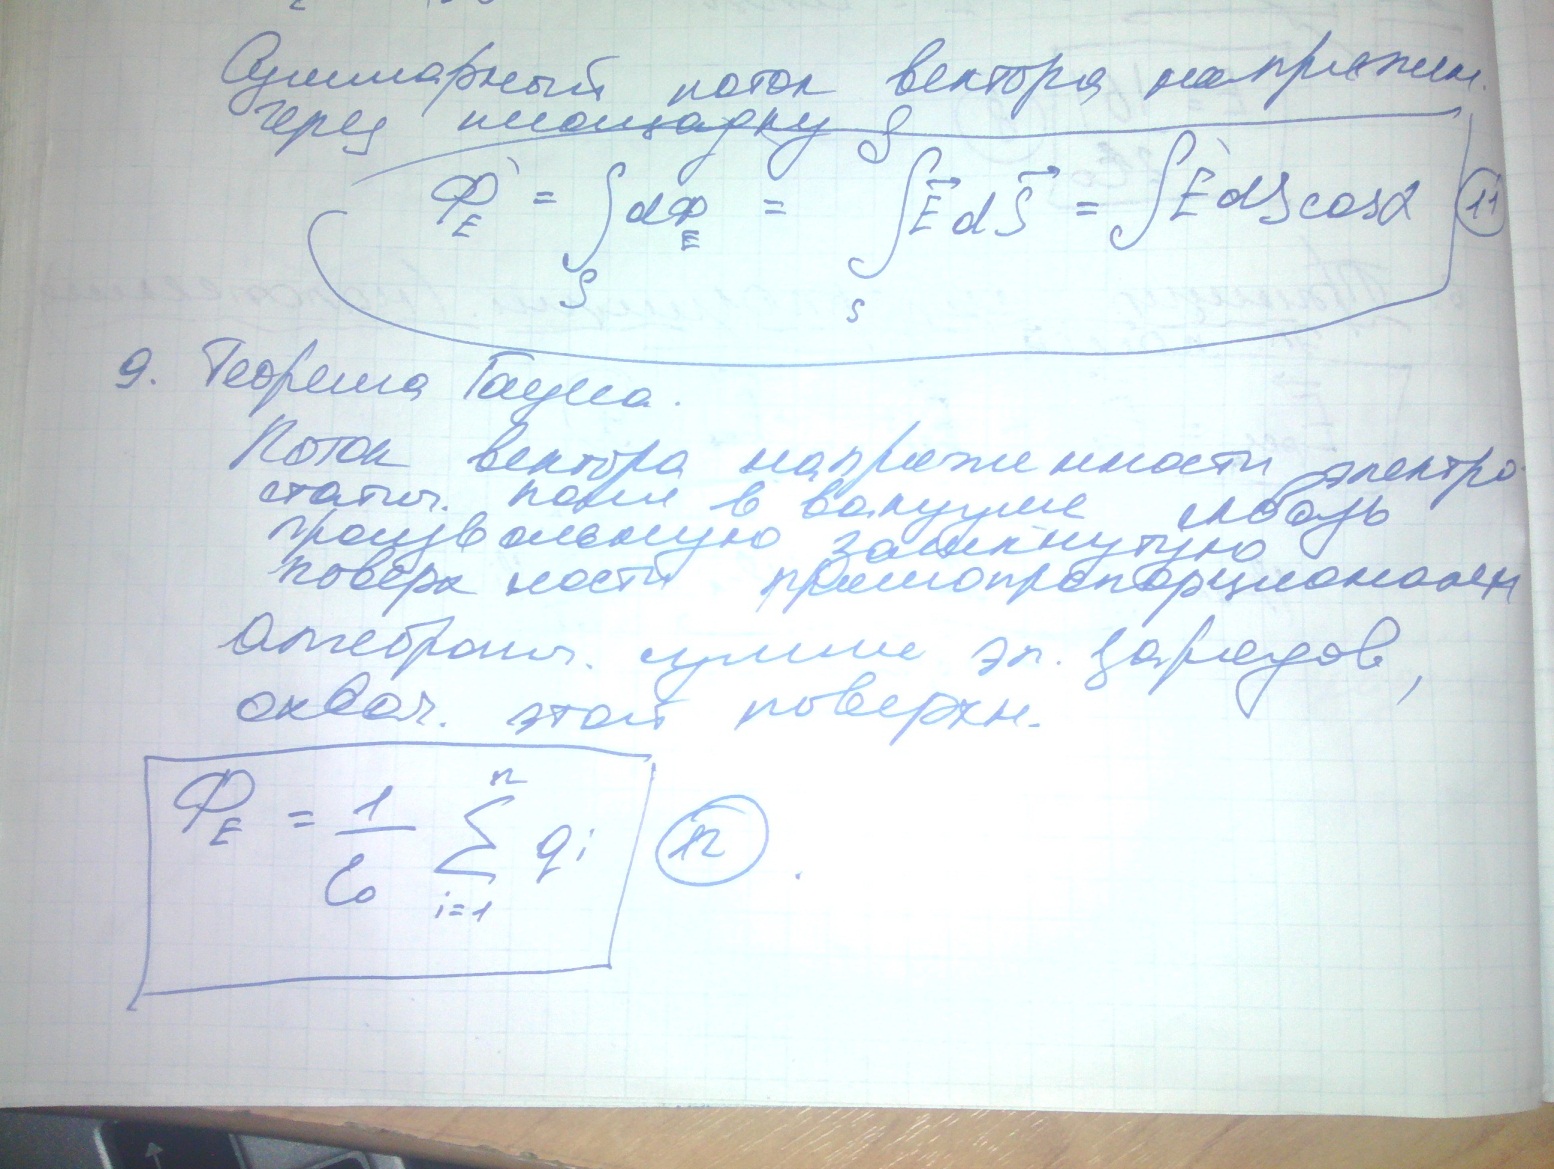 Суммарный поток вектора напряжен.
через площадку S
Φ_E = ∫_S dΦ_E = ∫_S E⃗ dS⃗ = ∫ E dS cosα (11)
9. Теорема Гаусса.
Поток вектора напряженности электро-
статич. поля в вакууме сквозь
произвольную замкнутую
поверхности прямопропорционален
Алгебраич. сумме эл. зарядов,
охвач. этой поверхн.
Φ_E = 1/ε₀ ∑_{i=1}^{n} q_i (12).